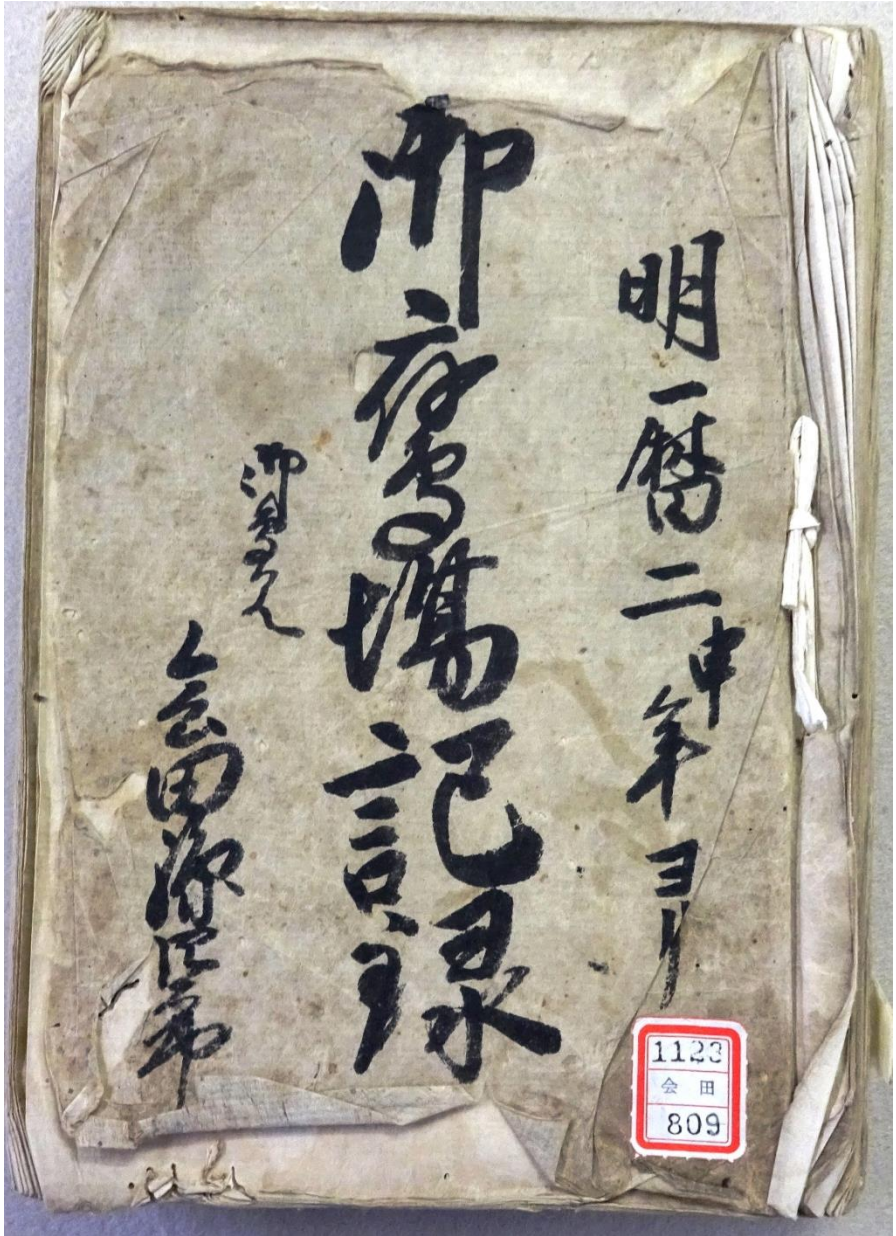 明暦二申年ヨリ
御鷹場記録
御鳥見
会田源四郎
1123
会田
809